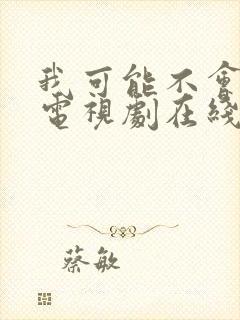 我可能不會
電視劇在綫
蔡敏